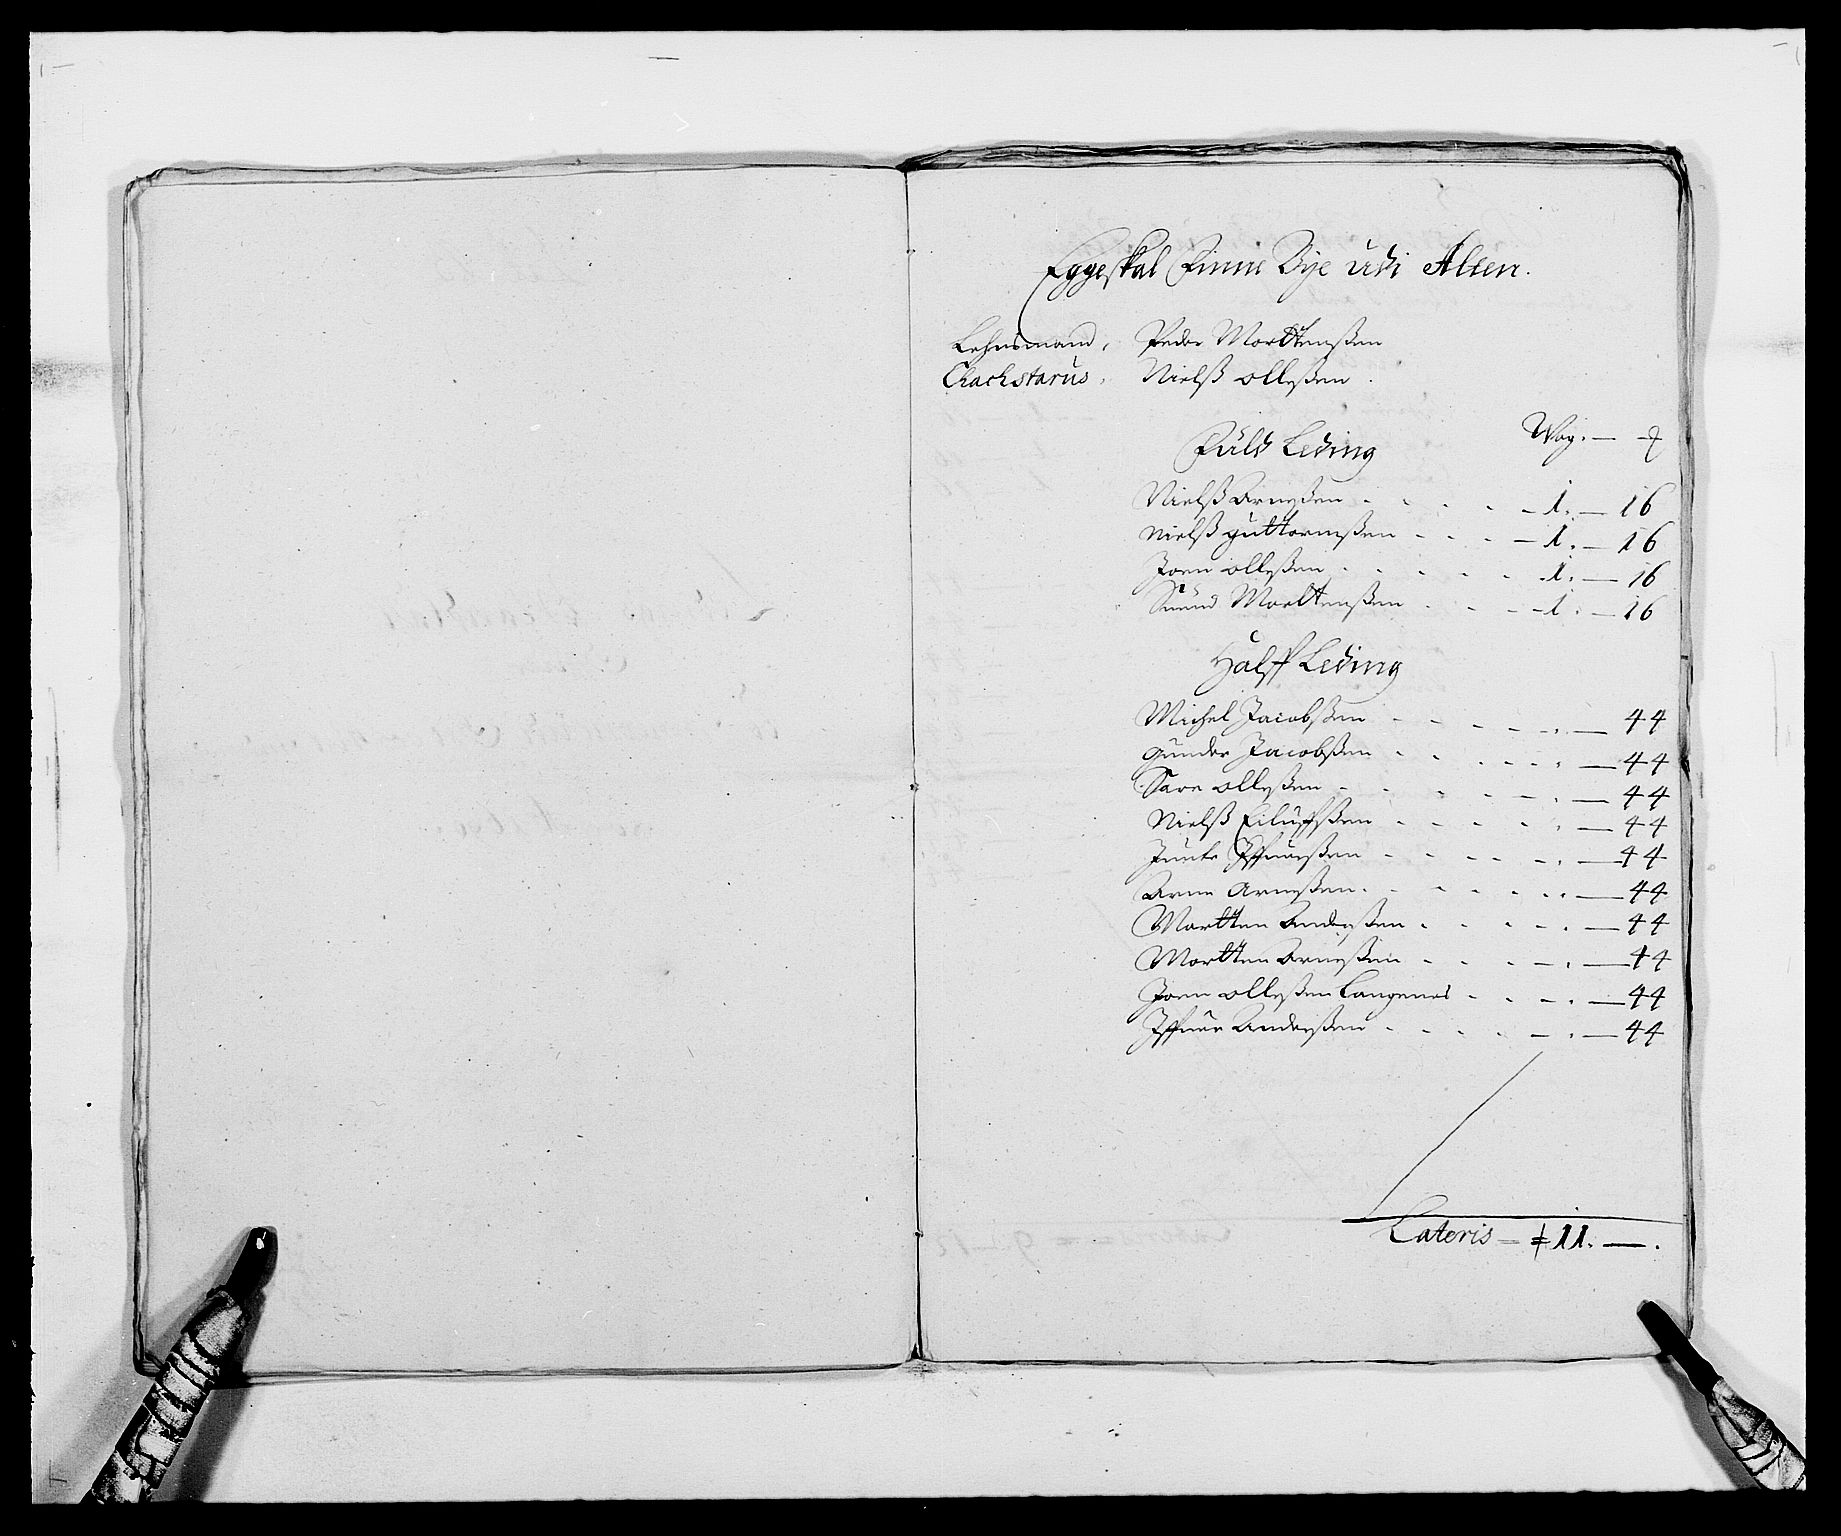 Eggeskal Finne Bye udi Alten.
Lehnsmand, Peder Morttenßen
Nielß Olleßen.
Fuld Leding Wog. —
Nielß Arneßen - - - 1. — 16
Nielß Guttormßen - - - 1. — 16
Joen Olleßen - - - 1. — 16
Morttenßen - - - 1. — 16
Halff Leding
Michel Jacobßen - - - — 44
Gunder Jacobßen - - - — 44
Sare Olleßen - - - — 44
Nielß Eiluffßen - - - — 44
— 44
Arne Arneßen - - - — 44
Mortten Anderßen - - - — 44
Mortten Arneßen - - - — 44
Joen Olleßen Langenes - - - — 44
Iffuer Anderßen - - - — 44
Lateris — 11. — .